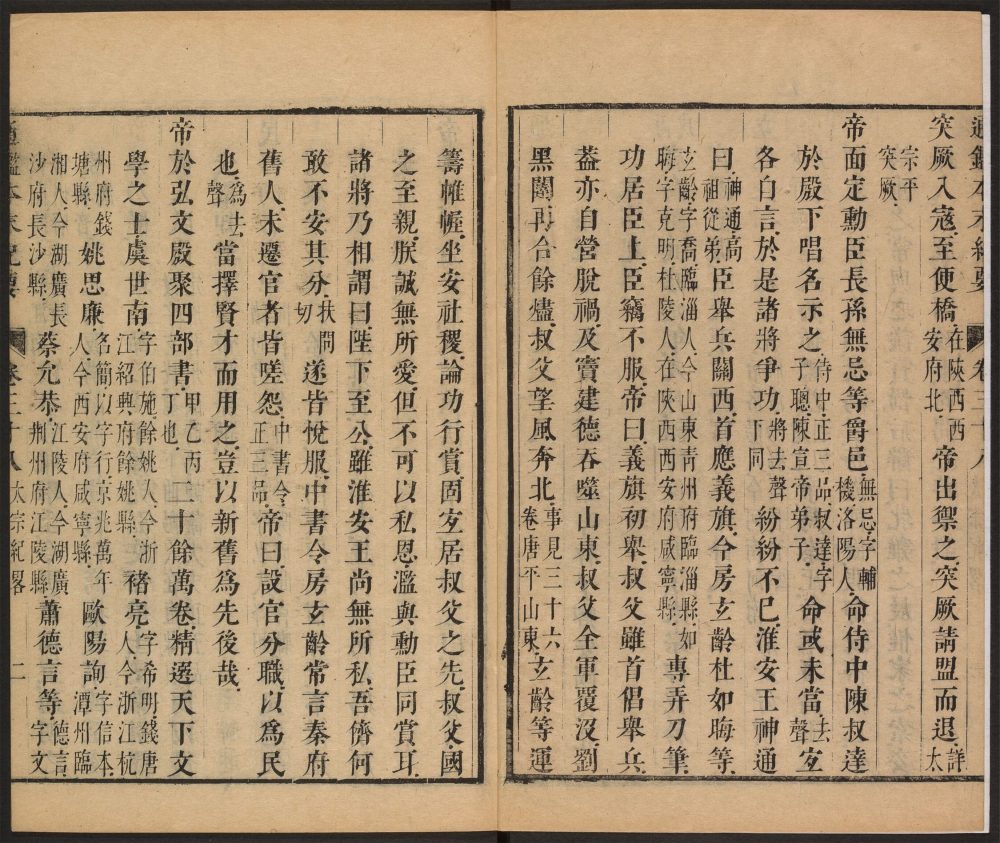 通鑑本末紀要 卷三十八
突厥入寇至便橋在陝西西安府北帝出禦之突厥請盟而退詳太
宗平突厥
帝面定勳臣長孫無忌等爵邑無忌字輔機洛陽人命侍中陳叔達
於殿下唱名示之侍中正三品叔達字子聰陳宣帝弟子命或未當去聲宜
各自言於是諸將爭功將去聲下同紛紛不已淮安王神通
曰神通高祖從弟臣舉兵關西首應義旗今房玄齡杜如晦等
玄齡字喬臨淄人今山東青州府臨淄縣如晦字克明杜陵人在陝西西安府咸寧縣專弄刀筆
功居臣上臣竊不服帝曰義旗初舉叔父雖首倡舉兵
蓋亦自營脫禍及竇建德吞噬山東叔父全軍覆沒劉
黑闥再合餘燼叔父望風奔北事見三十六卷唐平山東玄齡等運
籌帷幄坐安社稷論功行賞固宜居叔父之先叔父國
之至親朕誠無所愛但不可以私恩濫與勳臣同賞耳
諸將乃相謂曰陛下至公雖淮安王尚無所私吾儕何
敢不安其分扶問切遂皆悅服中書令房玄齡常言秦府
舊人未遷官者皆嗟怨中書令正三品帝曰設官分職以爲民
也爲去聲當擇賢才而用之豈以新舊爲先後哉
帝於弘文殿聚四部書甲乙丙丁也二十餘萬卷精選天下文
學之士虞世南字伯施餘姚人今浙江紹興府餘姚縣褚亮字希明錢唐人今浙江杭
州府錢塘縣姚思廉名簡以字行京兆萬年人今西安府咸寧縣歐陽詢字信本潭州臨
湘人今湖廣長沙府長沙縣蔡允恭江陵人今湖廣荆州府江陵縣蕭德言等德言字文
通鑑本末紀要 卷三十八 太宗紀畧 二